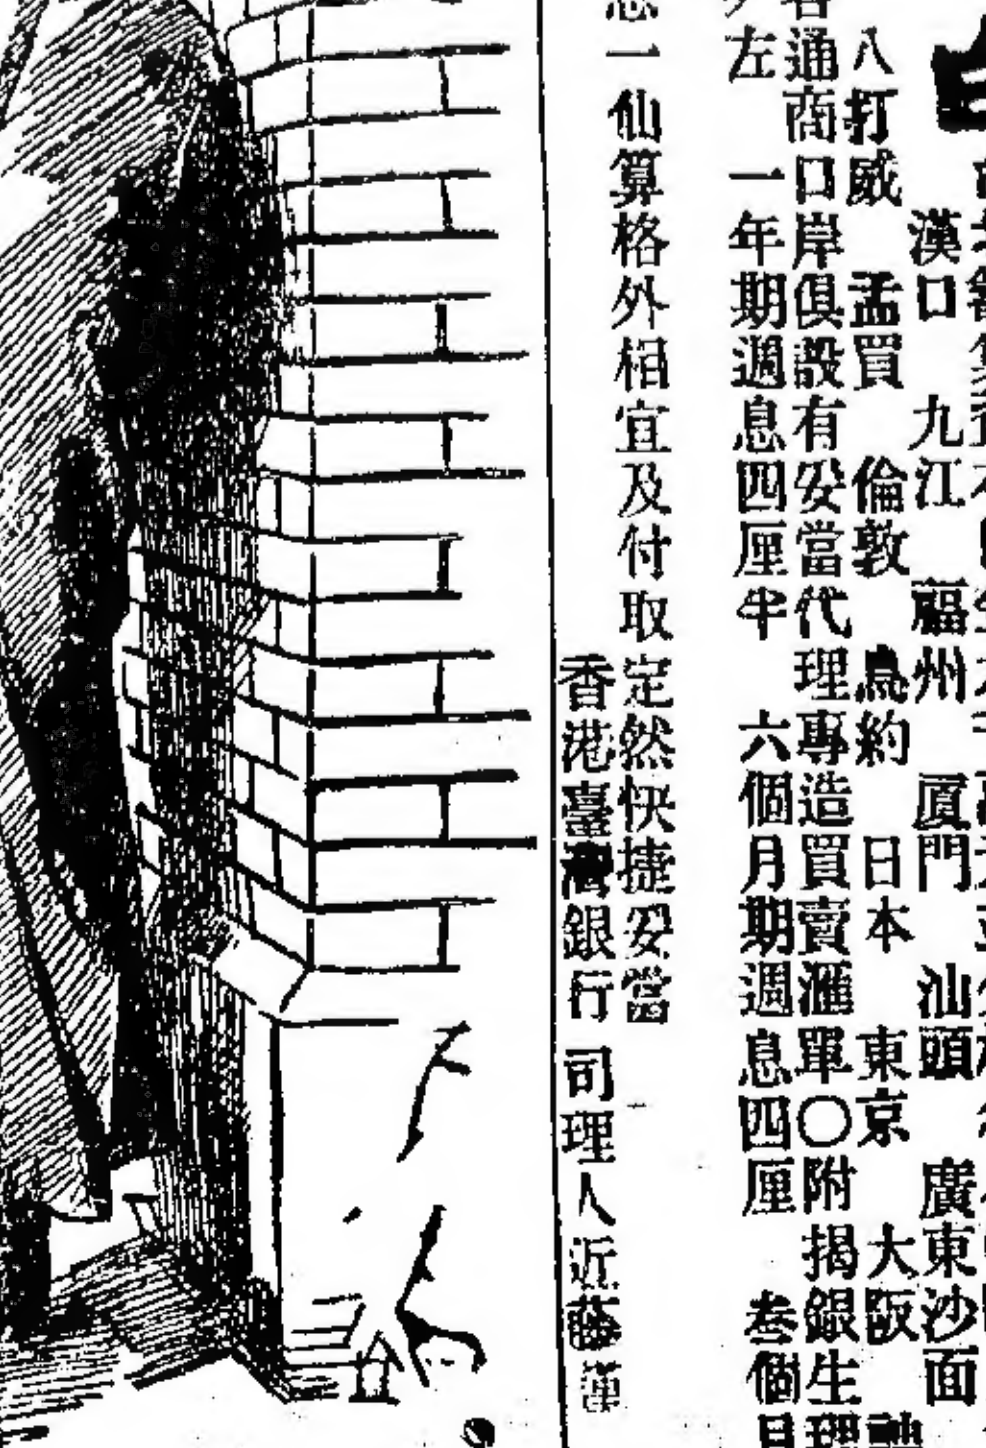 漢口 九江 福州 厦門 汕頭 廣東沙面
八打威 孟買 倫敦 鳥約 日本 東京 大阪
通商口岸俱設有妥當代理專造買賣滙單〇附揭銀生理
左 一年期週息四厘半 六個月期週息四厘 叁個月
息一仙算格外相宜及付取定然快捷妥當
香港臺灣銀行 司理人近藤